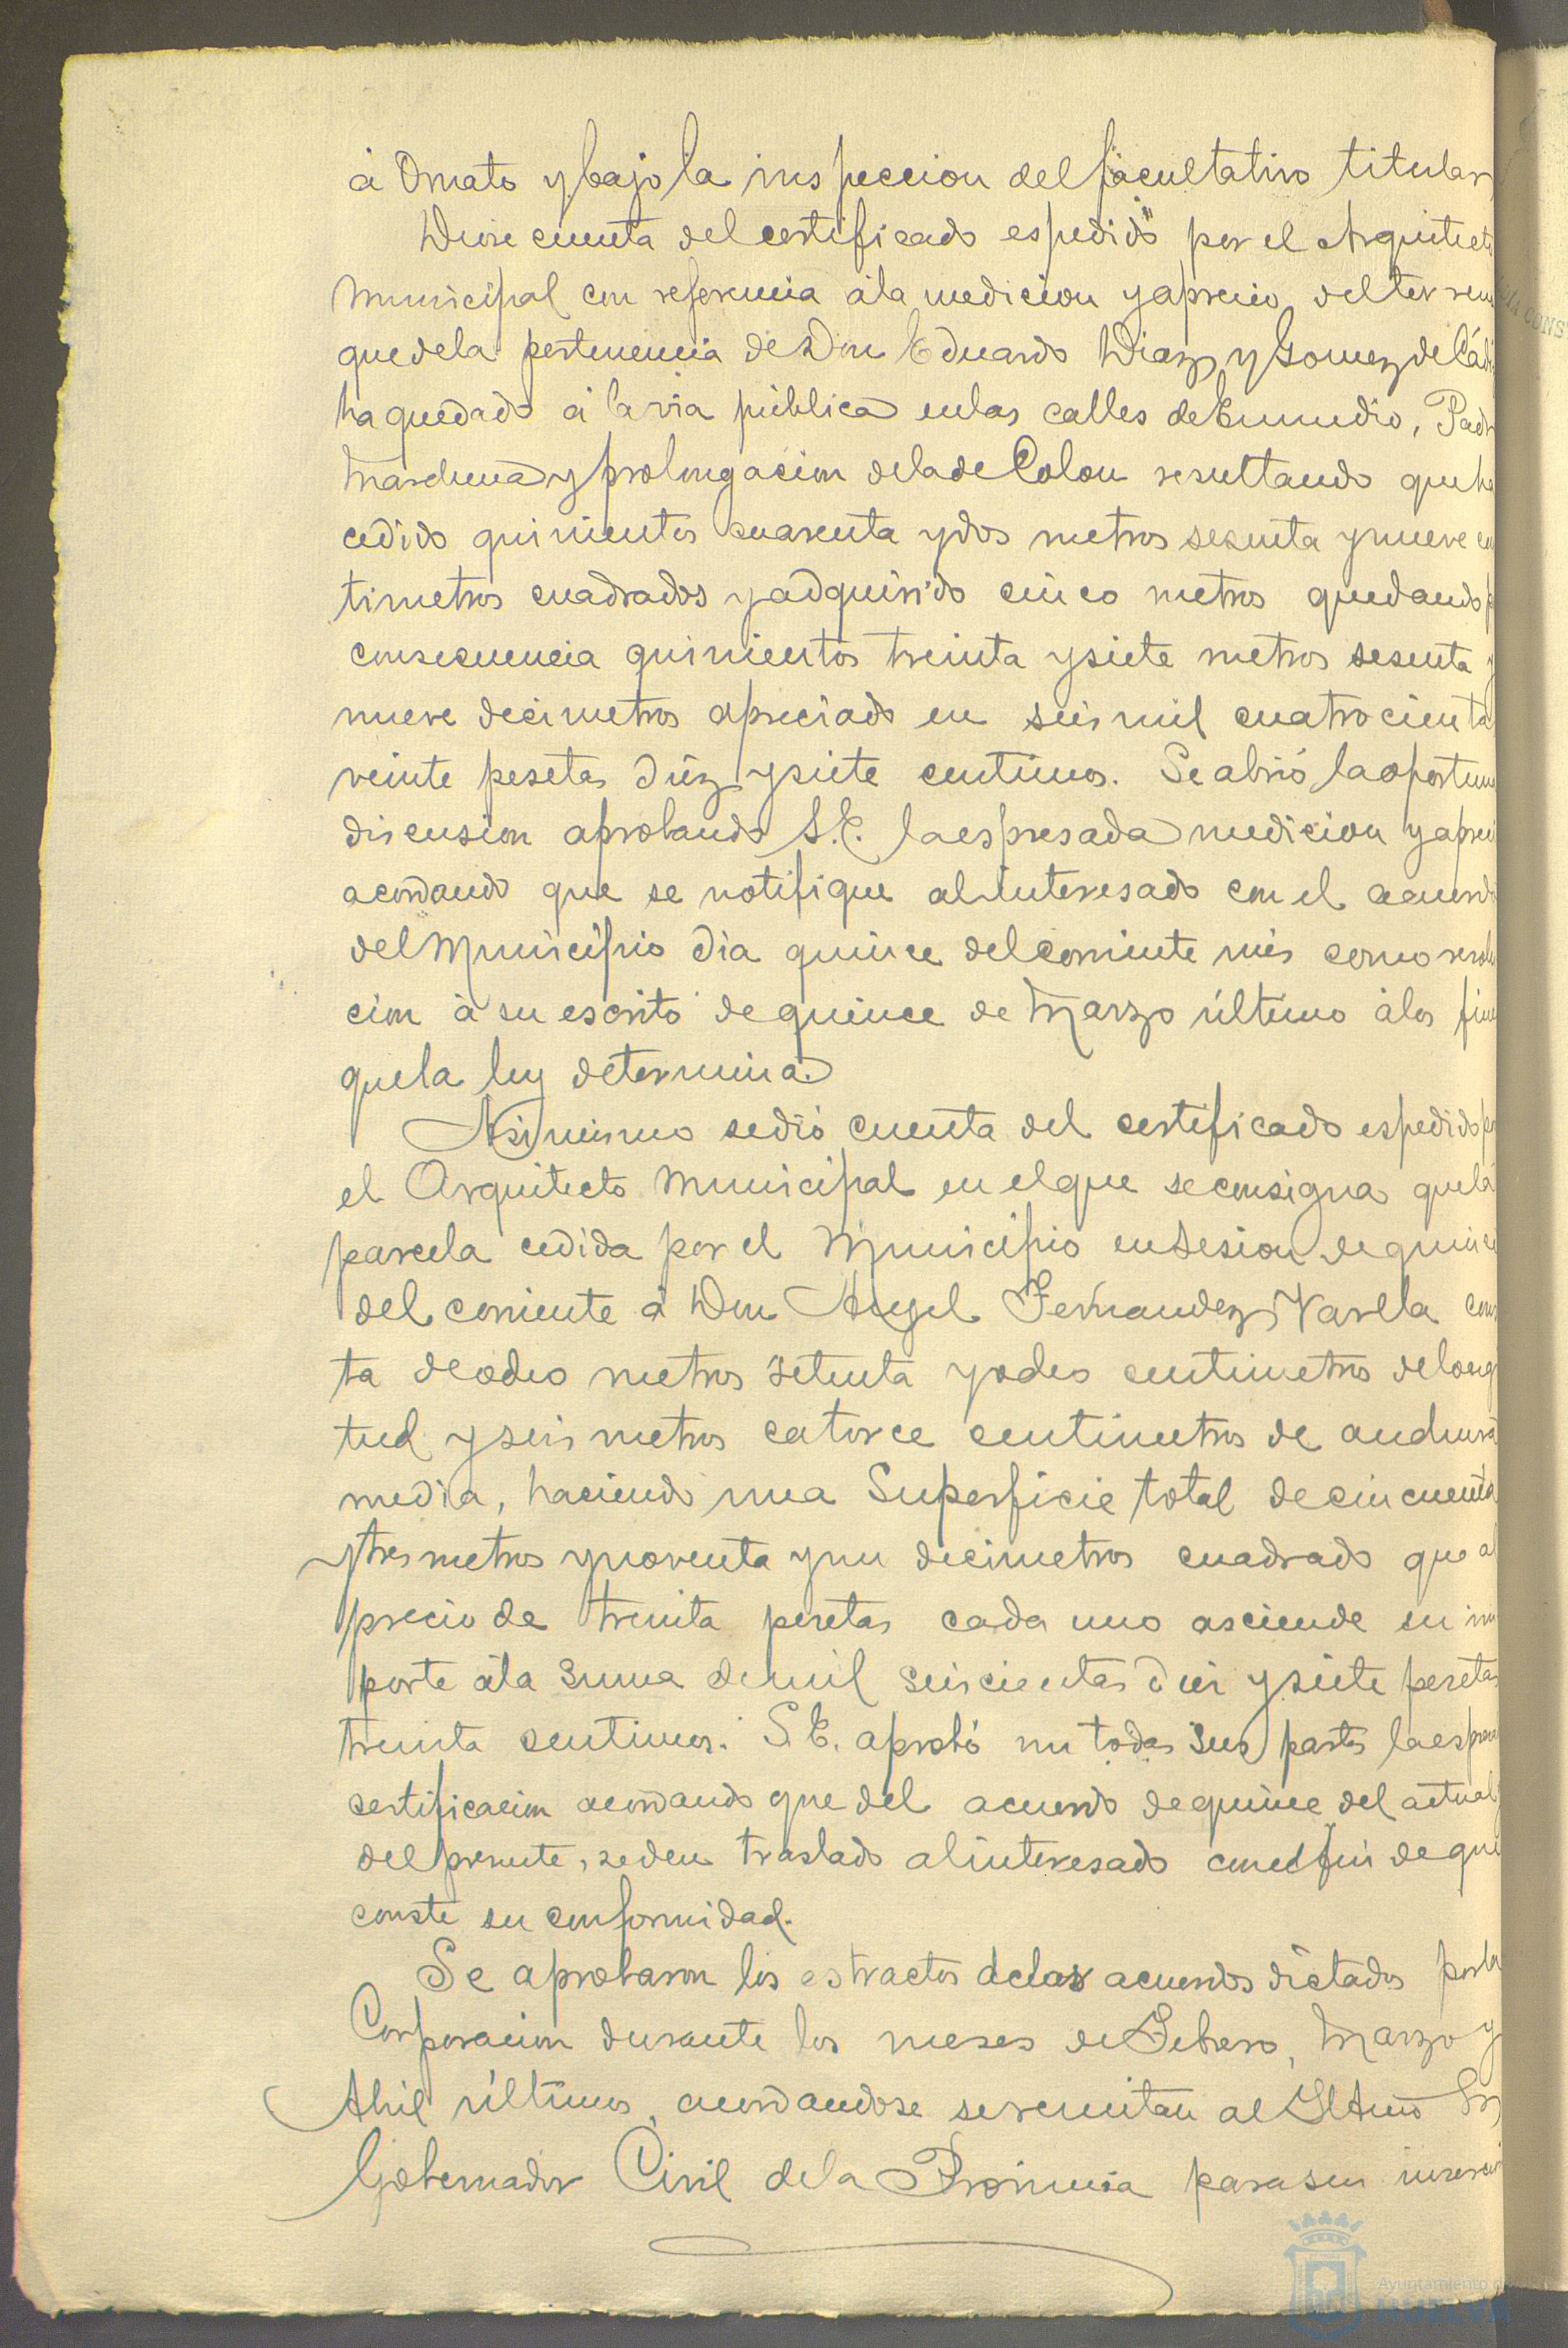 á Ornato y bajo la inspeccion del facultativo titular
Diose cuenta del certificado espedido por el Arquitecto
Municipal con referencia á la medicion y aprecio del terreno
que de la pertenencia de Don Eduardo Diaz y Gomez de Cádi
ha quedado á la via pública en las calles de Enmedio, Padre
Marchena y prolongacion de la de Colon resultando que ha
cedido quinientos cuarenta y dos metros sesenta y nueve cen
timetros cuadrados y adquirido cinco metros quedando p
consecuencia quinientos treinta y siete metros sesenta y
nueve decimetros apreciado en seis mil cuatrocienta
veinte pesetas diez y siete centimos. Se abrió la oportuna
discusion aprobando S.E. la espresada medicion y apreci
acordando que se notifique al interesado con el acuerdo
del Municipio dia quince del corriente mes como resolu
cion á su escrito de quince de Marzo último á los fines
que la ley determina.
Asi mismo se dió cuenta del certificado espedido por
el Arquitecto Municipal en el que se consigna que la
parcela cedida por el Municipio en sesion de quince
del corriente á Don Angel Fernandez Varela cons
ta de ocho metros setenta y ocho centimetros de longi
tud y seis metros catorce centimetros de anchura
media, haciendo una Superficie total de cincuenta
y tres metros y noventa y un decimetros cuadrado que al
precio de treinta pesetas cada uno asciende su im
porte á la suma de mil seiscientas diez y siete pesetas
treinta centimos. S.E. aprobó en todas sus partes la espresa
certificacion acordando que del acuerdo de quince del actual y
del presente, se den traslado al interesado con el fin de que
conste su conformidad.
Se aprobaron los estractos de los acuerdos dictados por la
Corporacion durante los meses de Febrero, Marzo y
Abril últimos, acordandose se remitan al Iltmo Sr
Gobernador Civil de la Provincia para su insercio
Ayuntamiento de
HUELVA